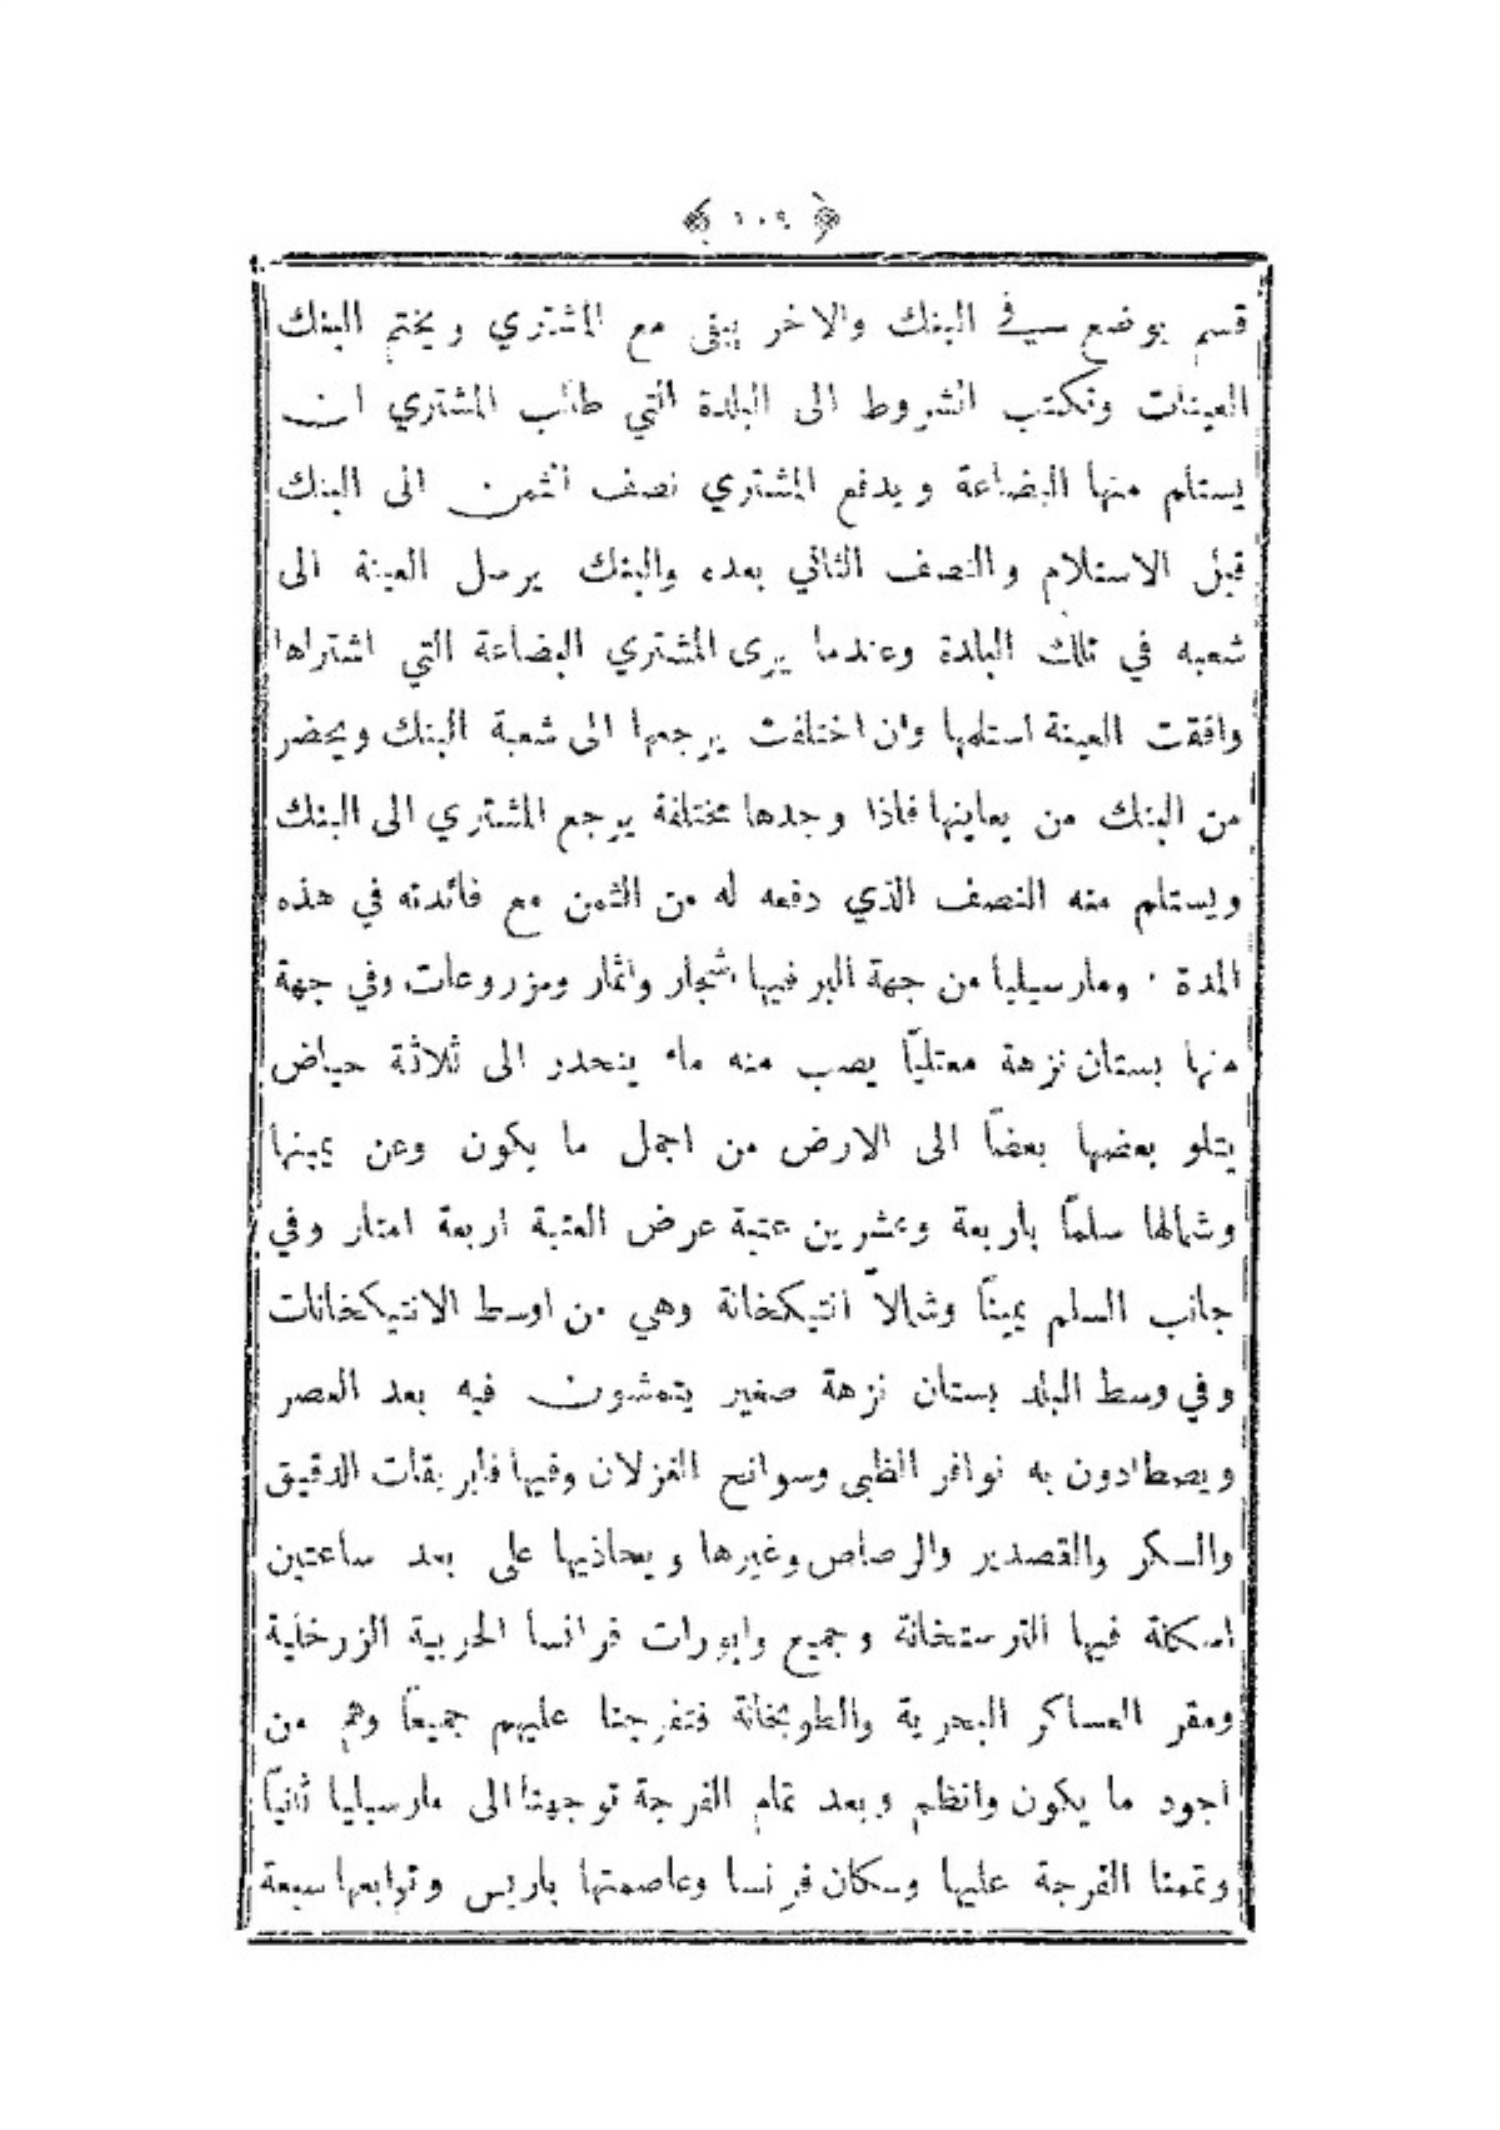 ﴿ ١٠٩ ﴾
قسم يوضع في البنك والاخر يبقى مع المشتري ويختم البنك
العينات وتكتب الشروط الى البلدة التي طلب المشتري ان
يستلم منها البضاعة ويدفع المشتري نصف الثمن الى البنك
قبل الاستلام والنصف الثاني بعده والبنك يرسل العينة الى
شعبه في تلك البلدة وعندما يرى المشتري البضاعة التي اشتراها
وافقت العينة استلمها وان اختلفت يرجعها الى شعبة البنك ويحضر
من البنك من يعاينها فاذا وجدها مختلفة يرجع المشتري الى البنك
ويستلم منه النصف الذي دفعه له من الثمن مع فائدته في هذه
المدة . ومارسيليا من جهة البر فيها اشجار واثمار ومزروعات وفي جهة
منها بستان نزهة معتليًا يصب منه ماء ينحدر الى ثلاثة حياض
يتلو بعضها بعضًا الى الارض من اجمل ما يكون وعن يمينها
وشمالها سلمًا باربعة وعشرين عتبة عرض العتبة اربعة امتار وفي
جانب السلم يمينًا وشمالاً انتيكخانة وهي من اوسط الانتيكخانات
وفي وسط البلد بستان نزهة صغير يتمشون فيه بعد العصر
ويصطادون به نوافر الظبى وسوانح الغزلان وفيها فابريقات الدقيق
والسكر والقصدير والرصاص وغيرها ويحاذيها على بعد ساعتين
اسكلة فيها الترستخانة وجميع وابورات فرانسا الحربية الزرخلية
ومقر العساكر البحرية والطوبخانة فتفرجنا عليهم جميعًا وهم من
اجود ما يكون وانظم وبعد تمام الفرجة توجهنا الى مارسيليا ثانيًا
وتممنا الفرجة عليها وسكان فرنسا وعاصمتها باريس وتوابعها سبعة